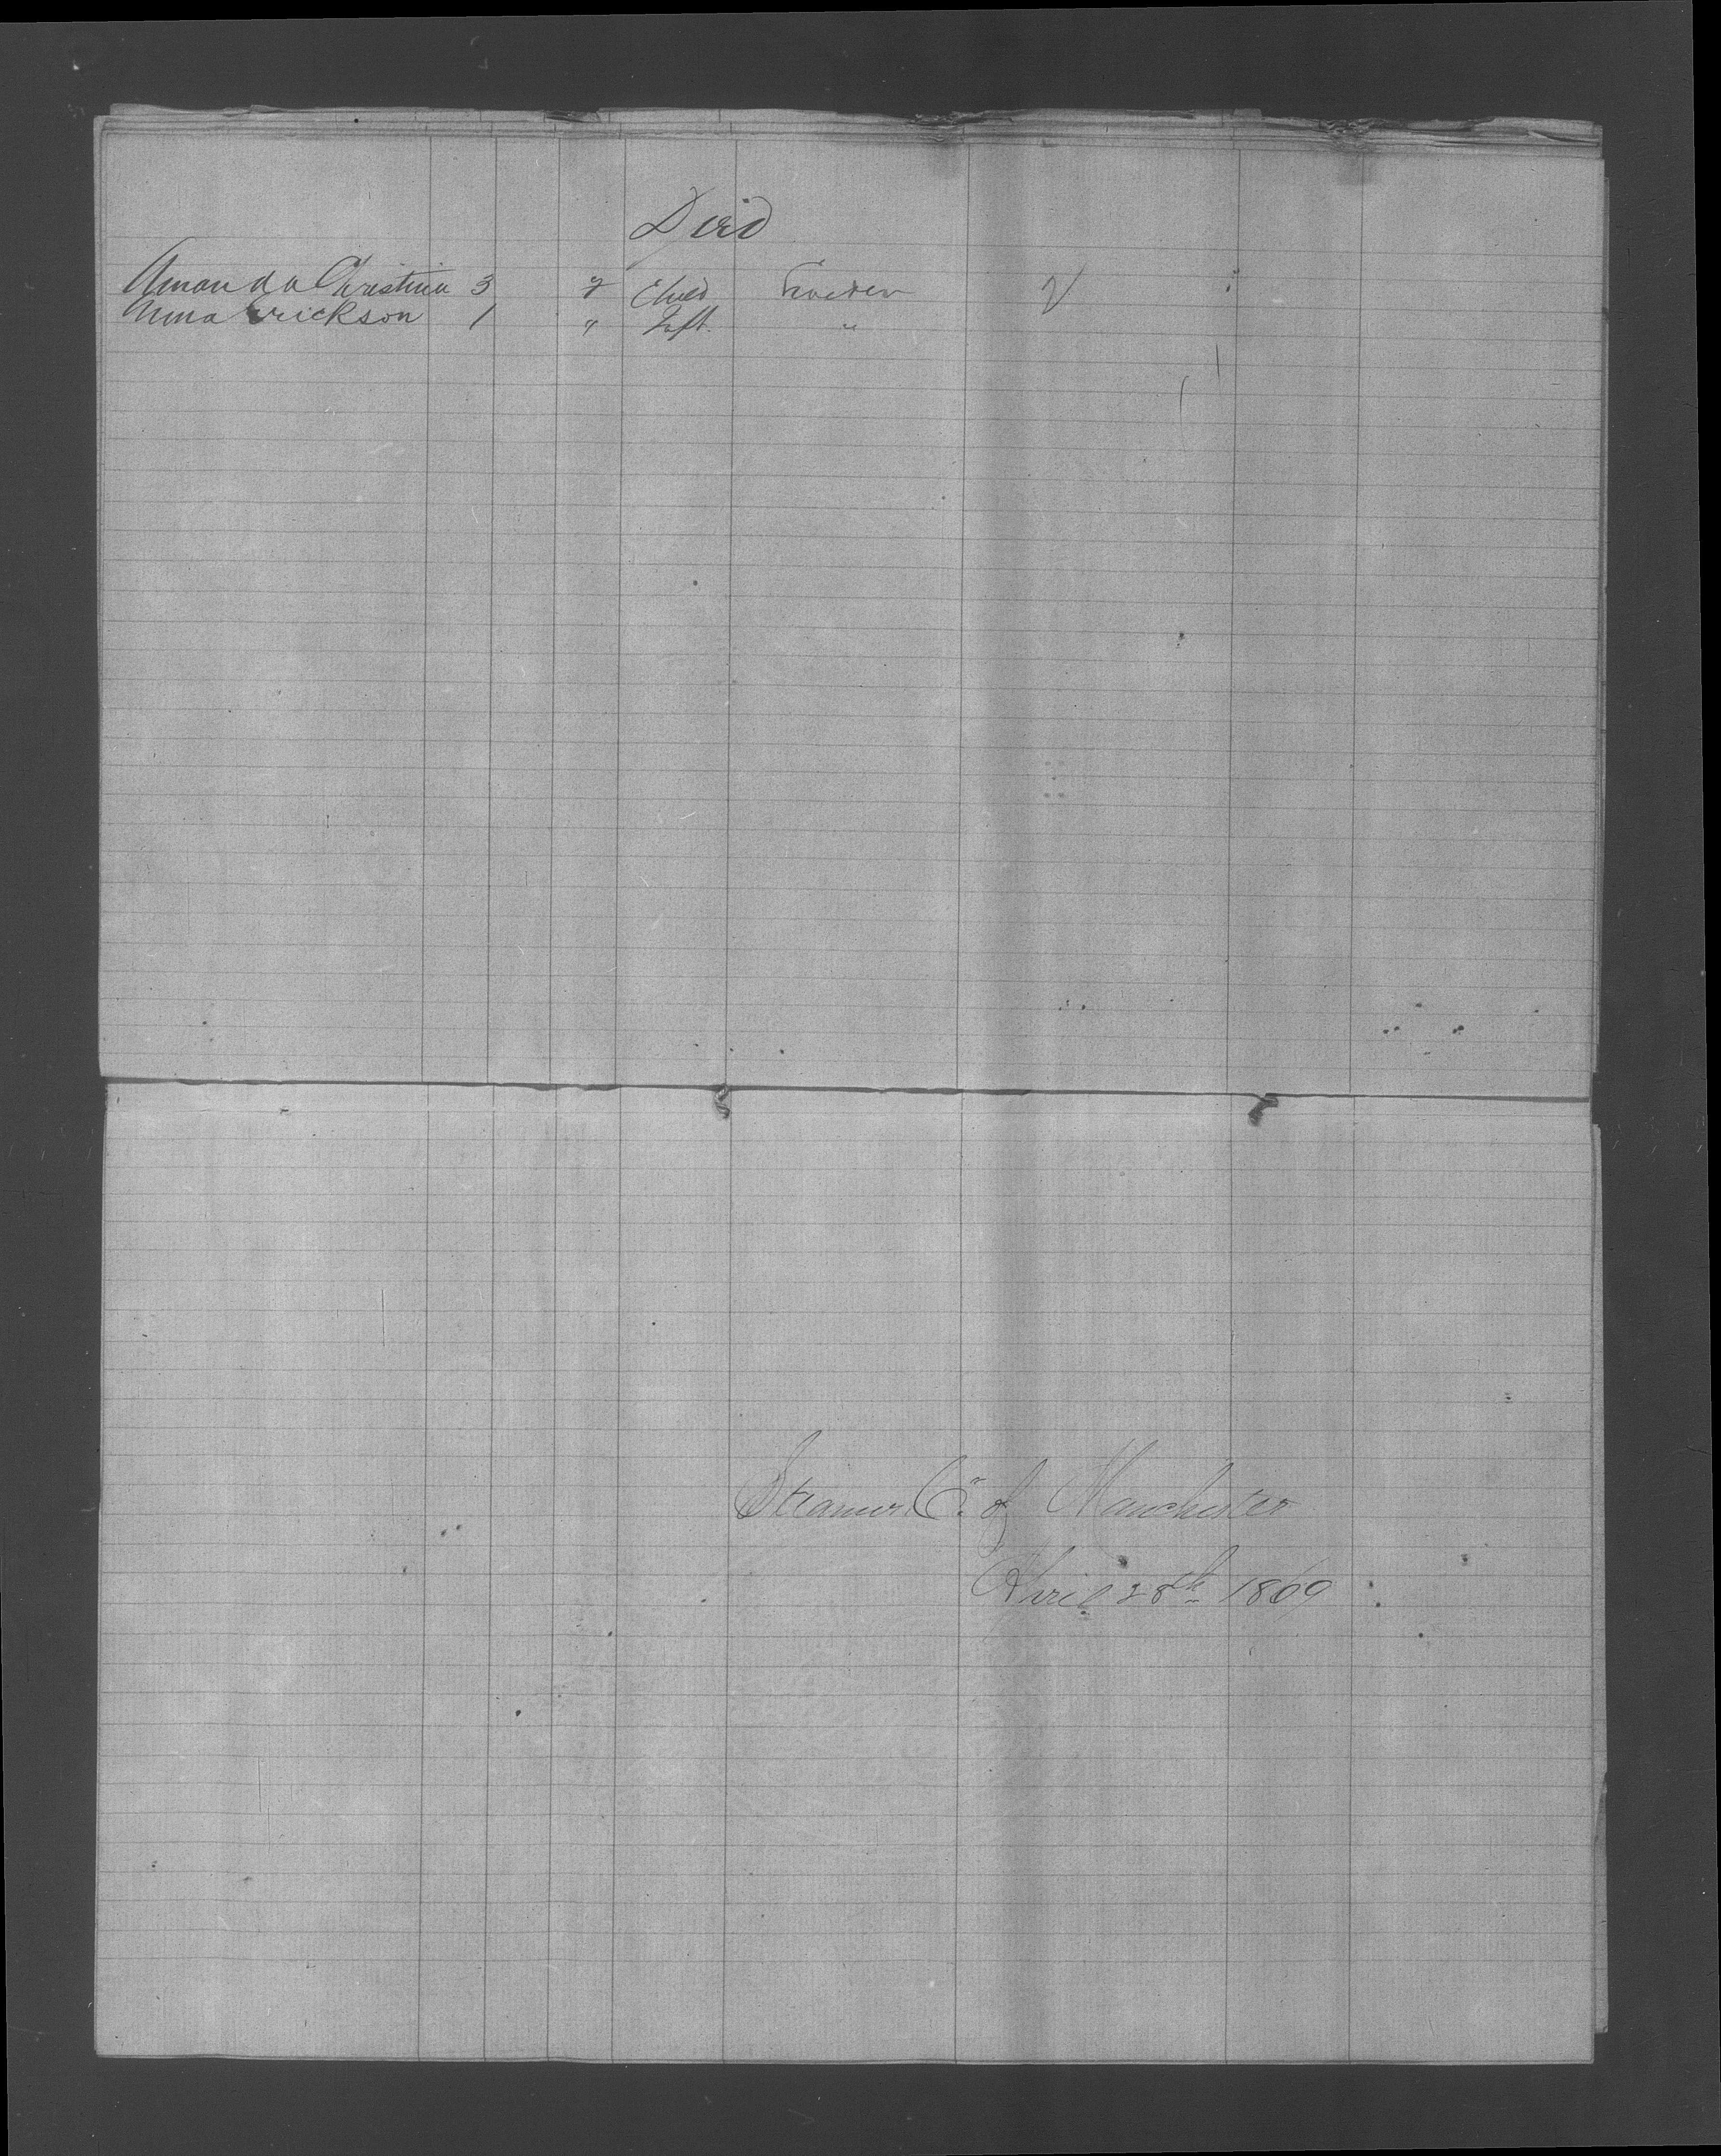 Died
Amanda Christina 3 f Child Sweden
Anna Erickson 1 " Inft. "
Steamer C. of Manchester
April 28th 1869